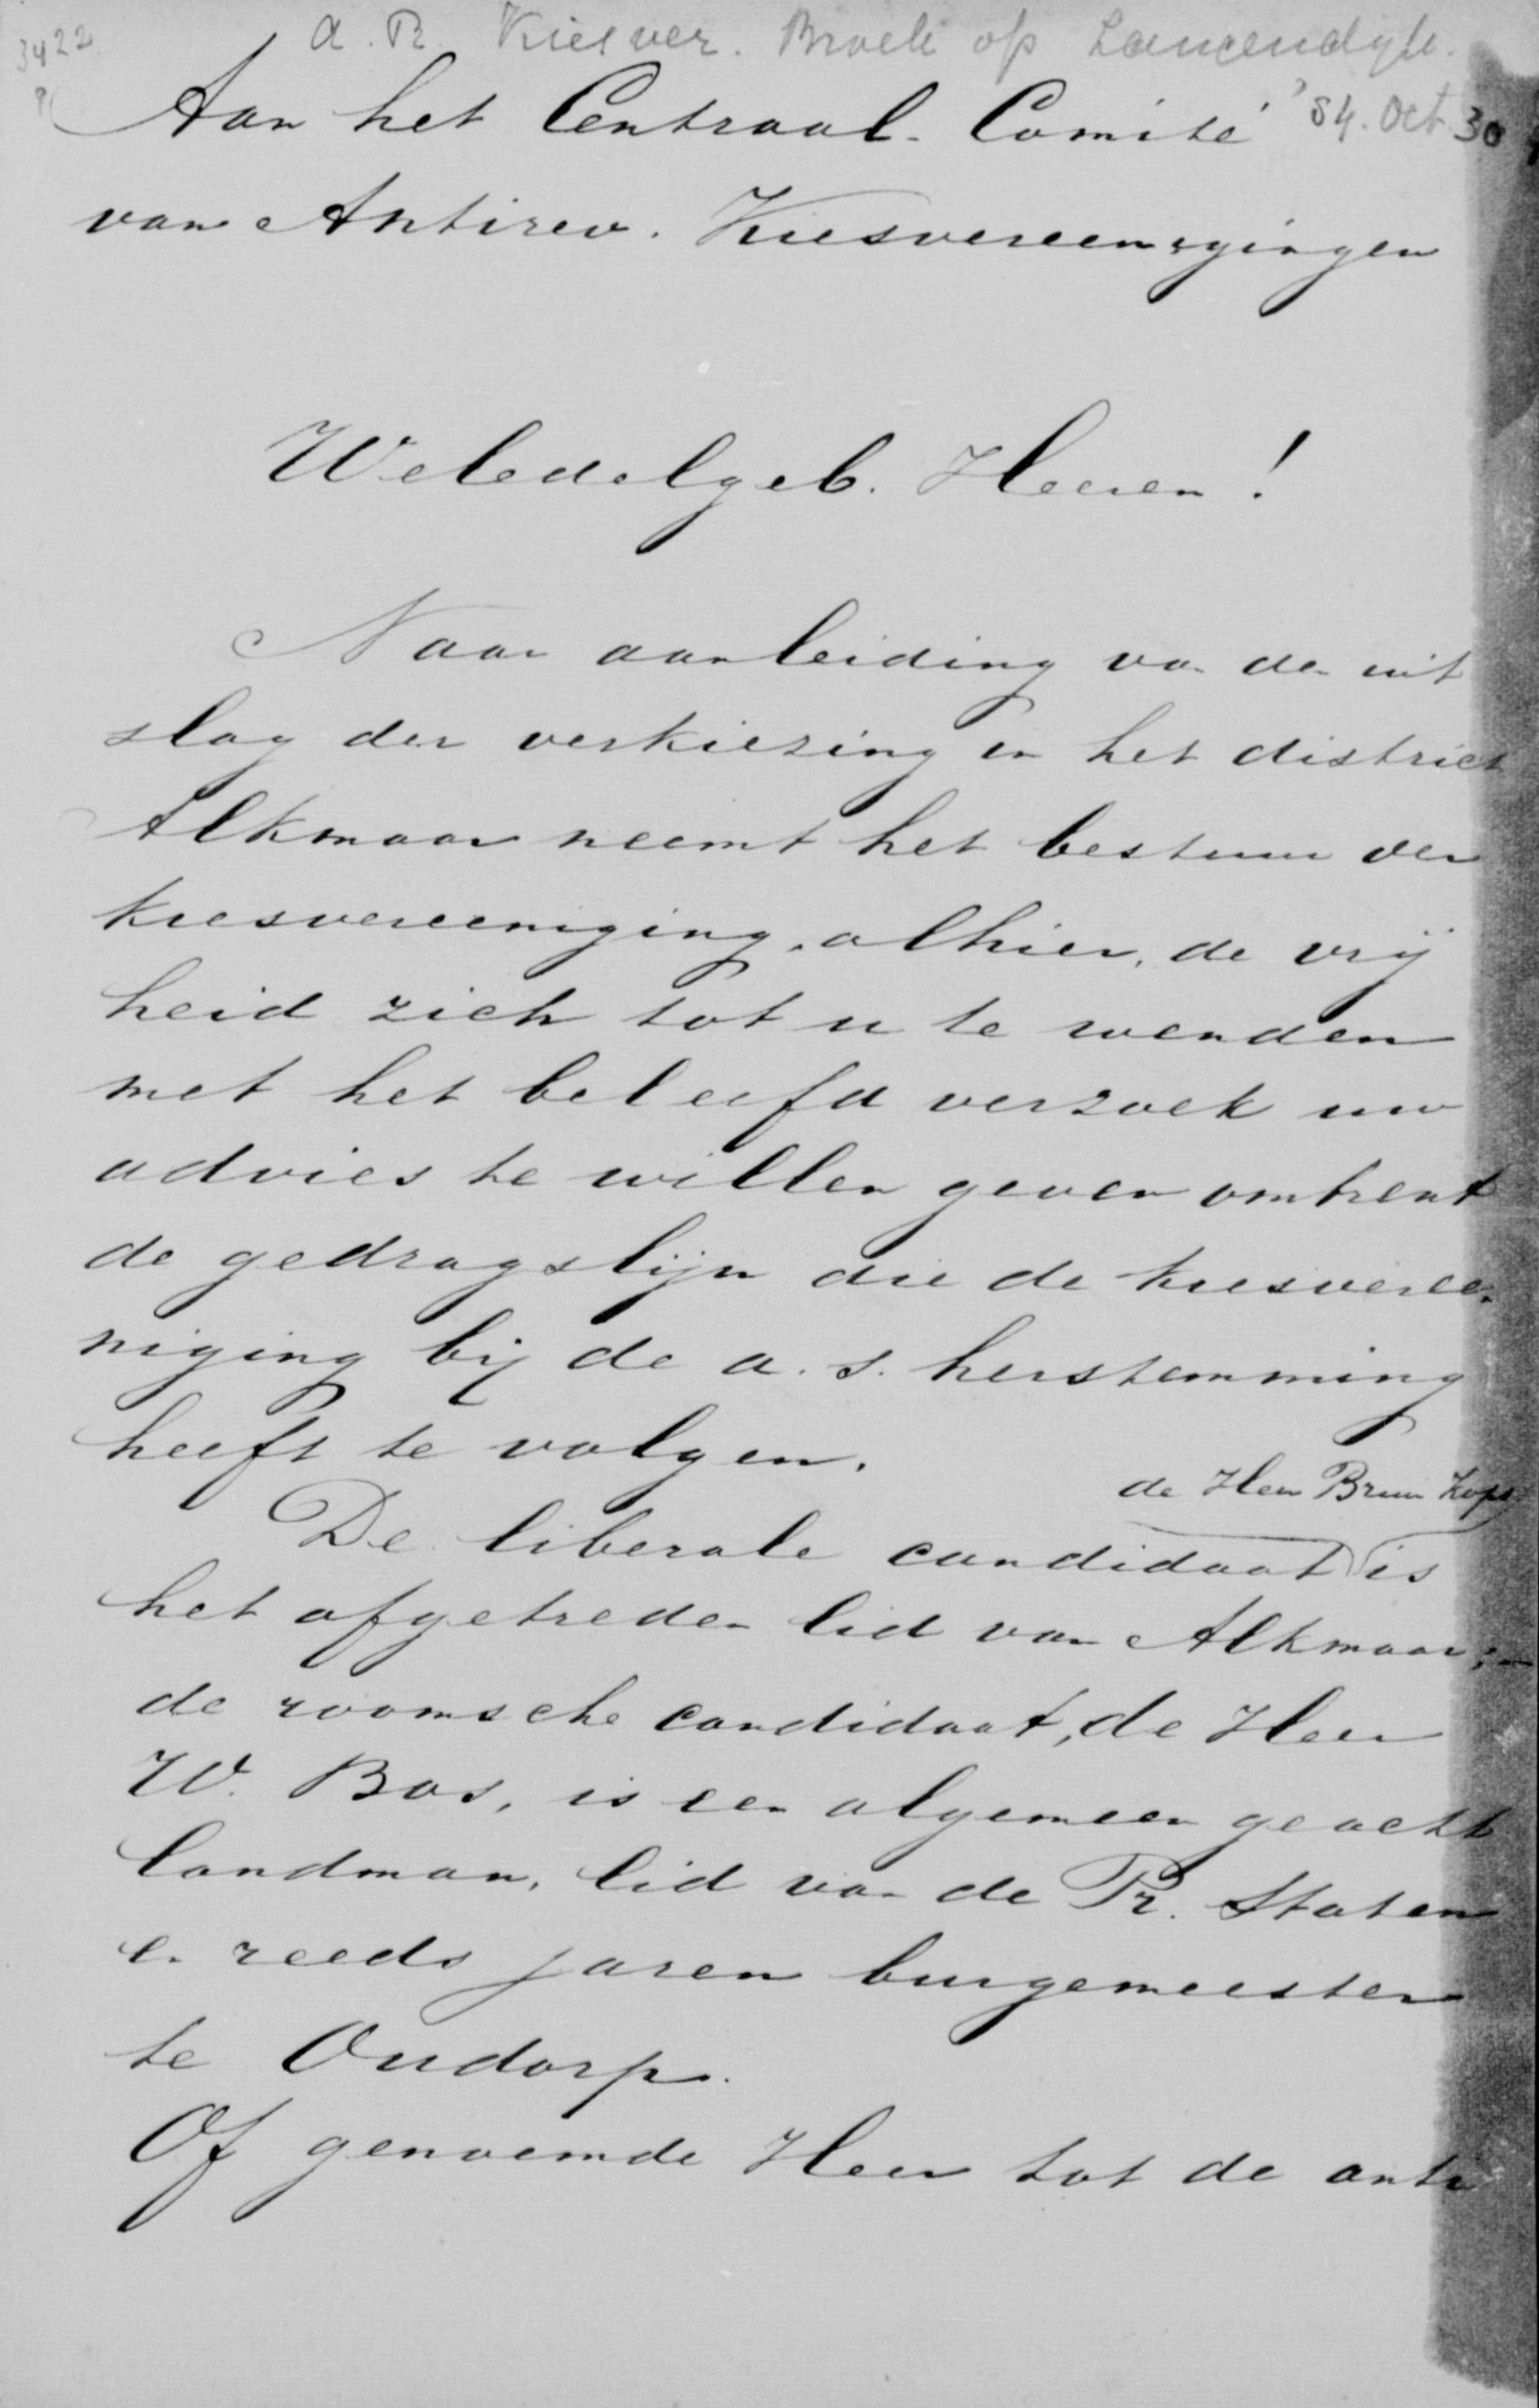 3422
A. R. Kiesver. Broek op Langendijk.
'84. Oct 30
Aan het Centraal-Comité
van Antirev. Kiesvereenigingen
Weledelgeb. Heeren!
Naar aanleiding van den uit
slag der verkiezing in het district
Alkmaar neemt het bestuur der
kiesvereeniging, alhier, de vrij
heid zich tot u te wenden
met het beleefd verzoek uw
advies te willen geven omtrent
de gedragslijn die de kiesveree-
niging bij de a. s. herstemming
heeft te volgen.
de Heer Bruin Kops
De liberale candidaat is
het afgetreden lid van Alkmaar;
de roomsche candidaat, de Heer
W. Bos, is een algemeen geacht
landman, lid van de Pr. Staten
en reeds jaren burgemeester
te Oudorp.
Of genoemde Heer tot de anti